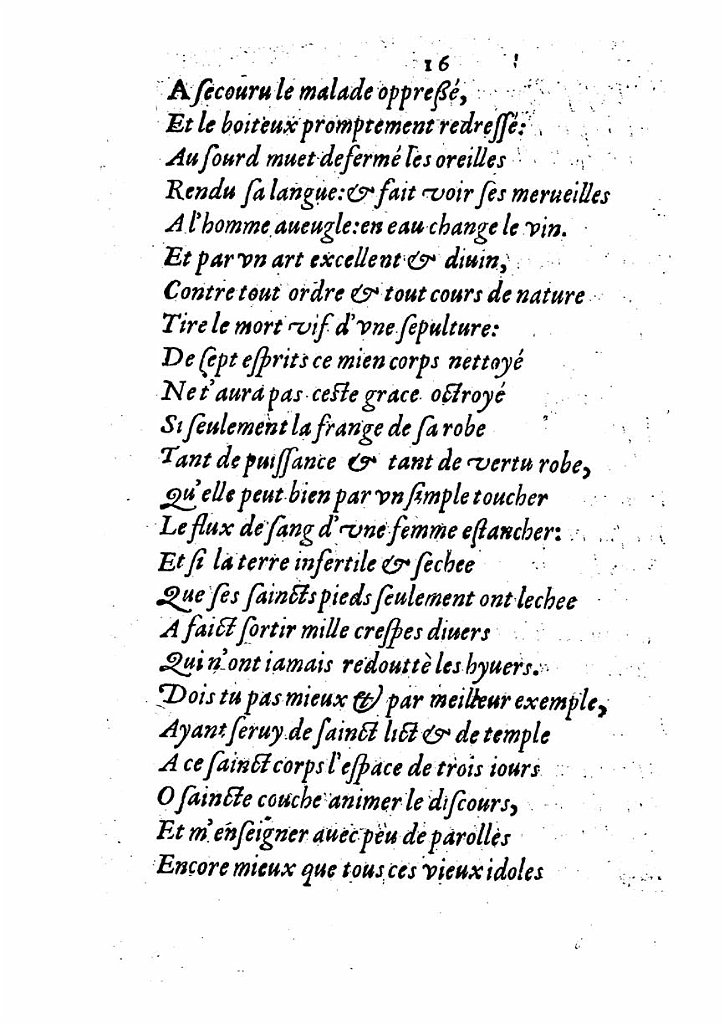 16
A ſecouru le malade oppreßé,
Et le boiteux promptement redreſſé:
Au ſourd muet defermé les oreilles
Rendu ſa langue: & fait voir ſes merueilles
A l'homme aueugle: en eau change le vin.
Et par vn art excellent & diuin,
Contre tout ordre & tout cours de nature
Tire le mort vif d'vne ſepulture:
De ſept eſprits ce mien corps nettoyé
Ne t'aura pas ceſte grace octroyé
Si ſeulement la frange de ſa robe
Tant de puiſſance & tant de vertu robe,
Qu'elle peut bien par vn ſimple toucher
Le flux de ſang d'vne femme eſtancher:
Et ſi la terre infertile & ſechee
Que ſes ſaincts pieds ſeulement ont lechee
A faict ſortir mille creſpes diuers
Qui n'ont iamais redouttè les hyuers.
Dois tu pas mieux & par meilleur exemple,
Ayant ſeruy de ſainct lict & de temple
A ce ſainct corps l'eſpace de trois iours
O ſaincte couche animer le diſcours,
Et m'enſeigner auec peu de parolles
Encore mieux que tous ces vieux idoles